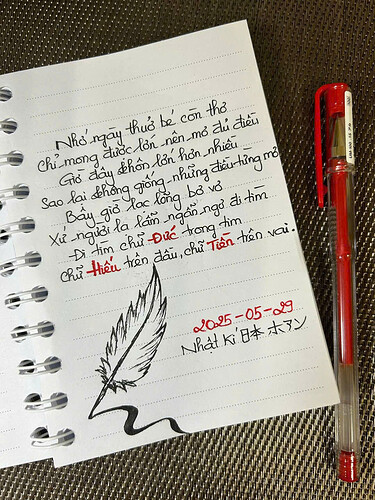 Nhớ ngày thuở bé còn thơ
Chỉ mong được lớn nên mơ đủ điều
Giờ đây khôn lớn hơn nhiều
Sao lại không giống những điều từng mơ
Bây giờ lạc lõng bơ vơ
Xứ người la lẩm ngẩn ngơ đi tìm
Đi tìm chữ Đức trong tim
Chữ Hiếu trên đầu, chữ Tiền trên vai.
2025-05-29
Nhật Kí 日本 ホアン